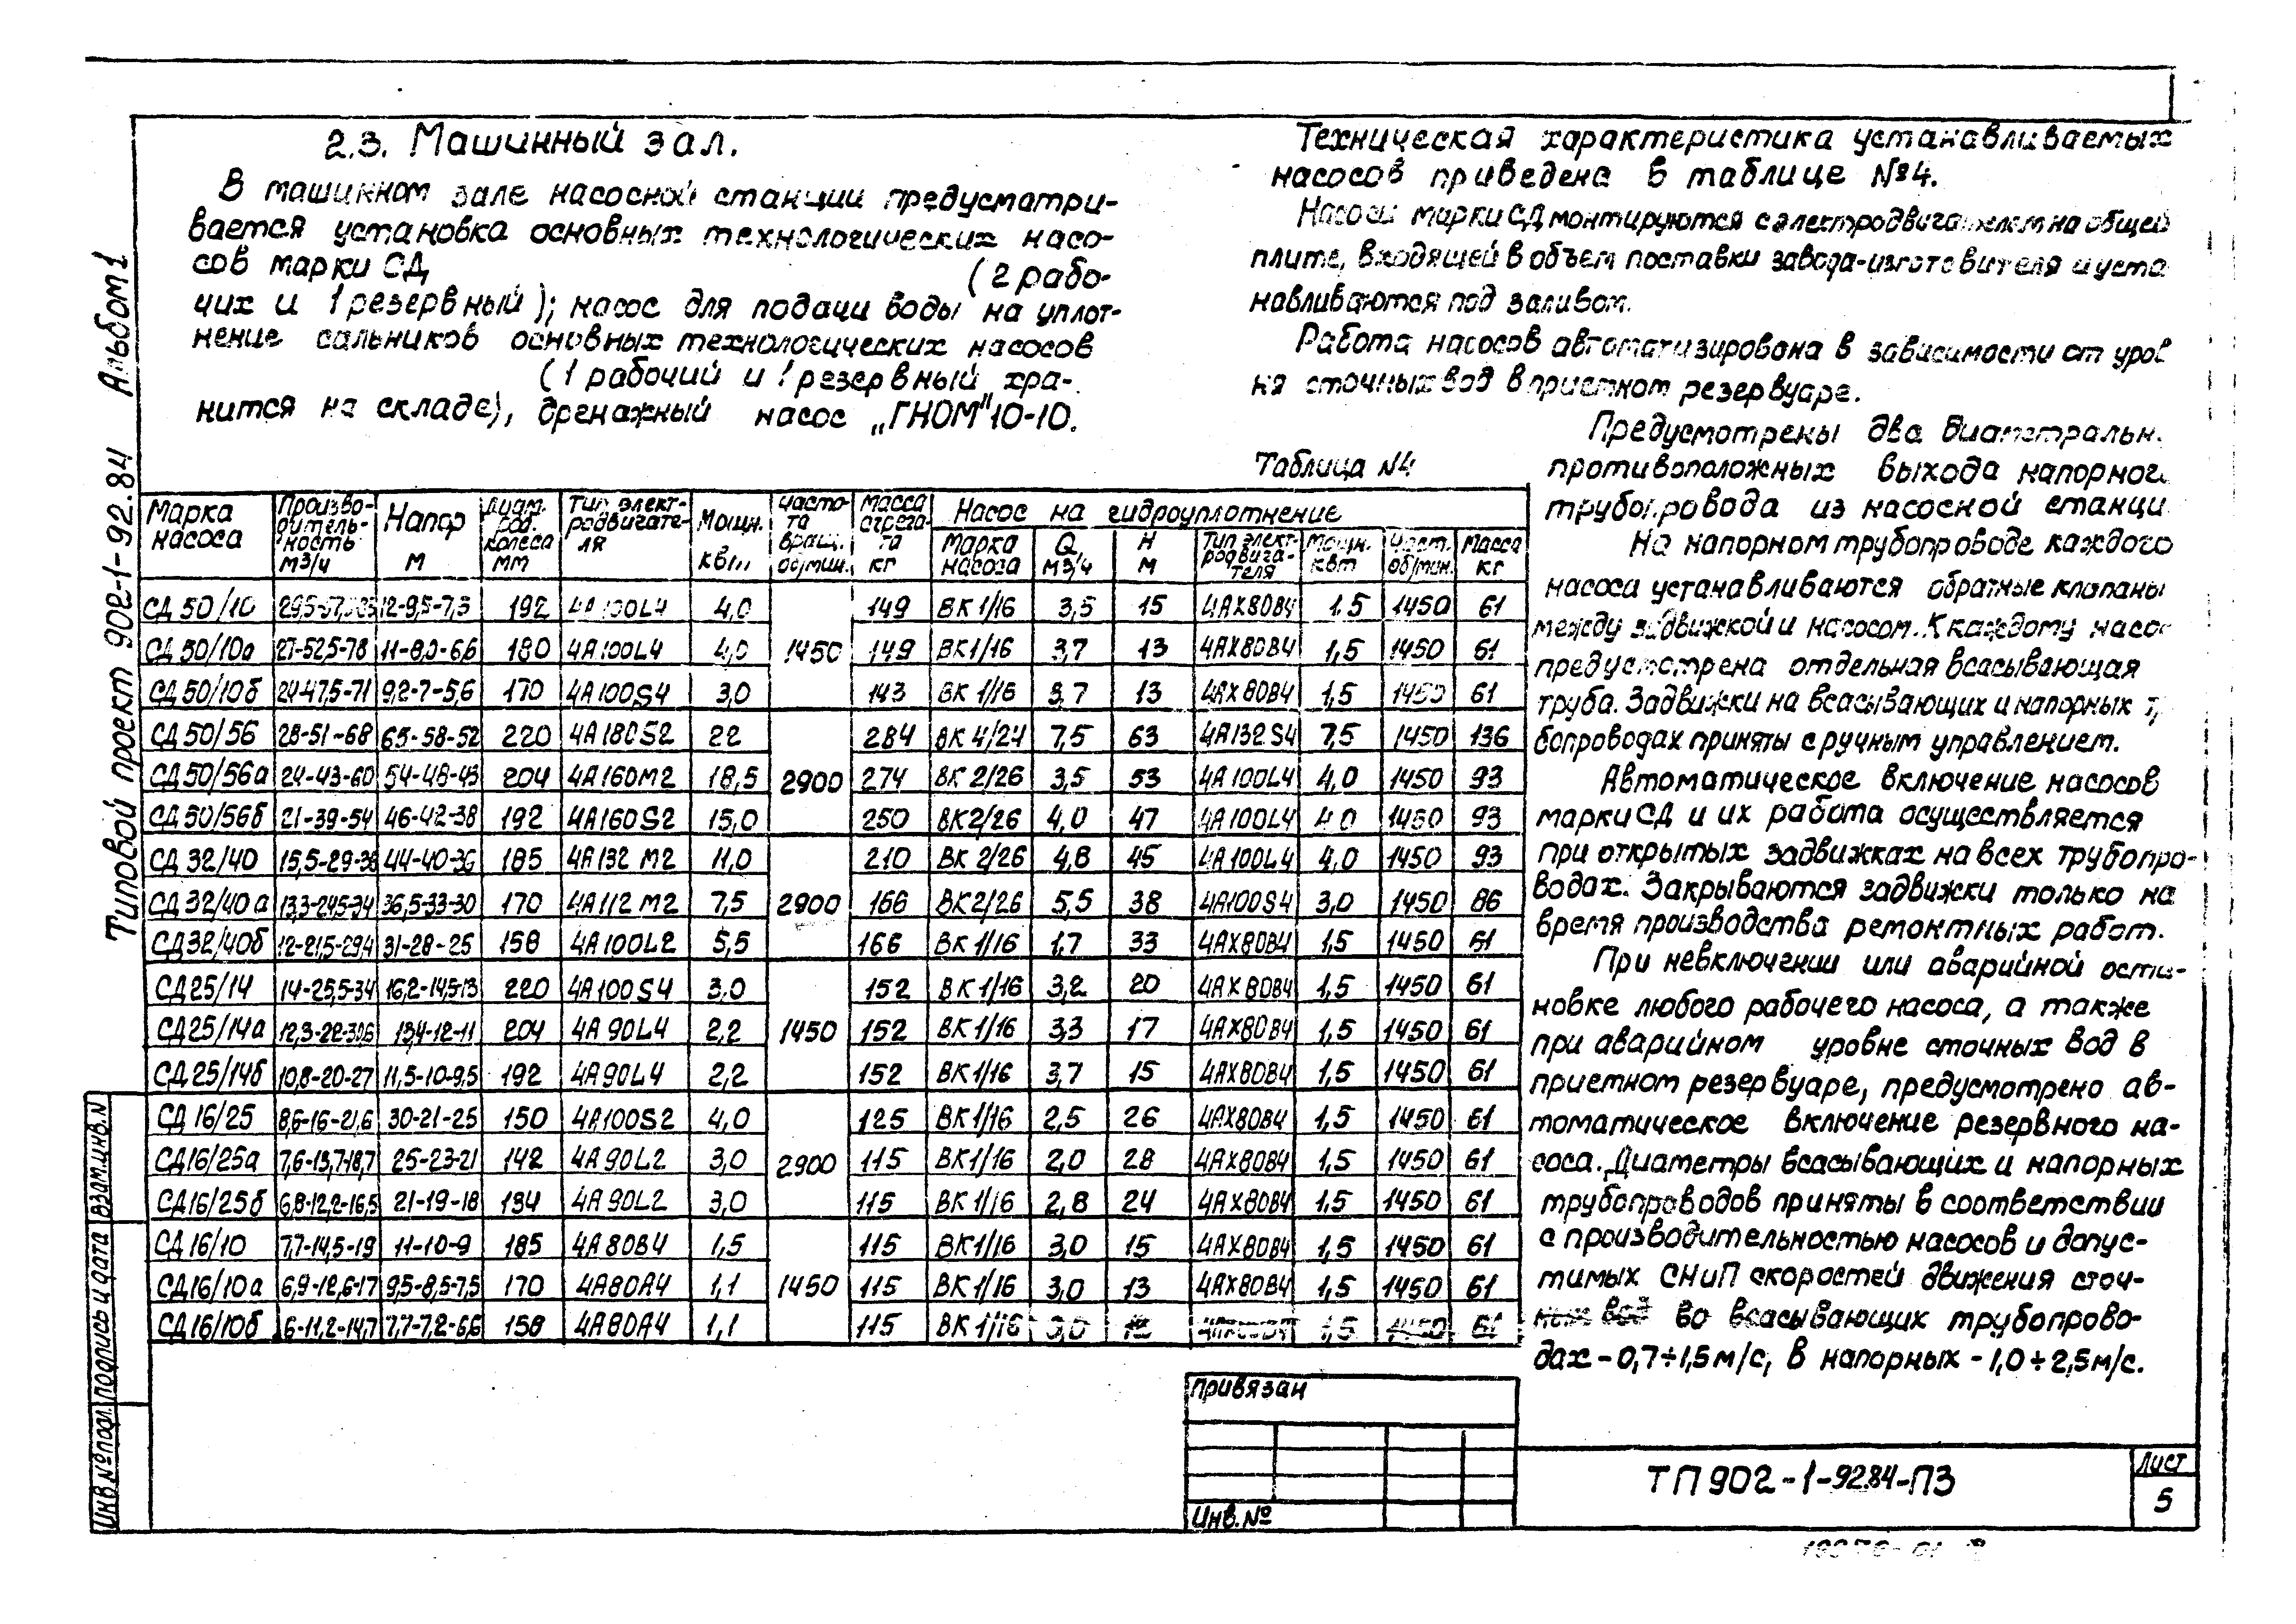 2.3. Машинный зал.
В машинном зале насосной станции предусматри-
вается установка основных технологических насо-
сов марки СД (2 рабо-
чих и 1 резервный); насос для подачи воды на уплот-
нение сальников основных технологических насосов
(1 рабочий и 1 резервный хра-
нится на складе), дренажный насос „ГНОМ" 10-10.
Техническая характеристика устанавливаемых
насосов приведена в таблице №4.
Насосы марки СД монтируются с электродвигателем на общей
плите, входящей в объем поставки завода-изготовителя и уста
навливаются под заливом.
Работа насосов автоматизирована в зависимости от уров
ня сточных вод в приемном резервуаре.
Предусмотрены два диаметральн.
противоположных выхода напорног.
трубопровода из насосной станци
На напорном трубопроводе каждого
насоса устанавливаются обратные клапаны
между задвижкой и насосом. К каждому насос
предусмотрена отдельная всасывающая
труба. Задвижки на всасывающих и напорных т
бопроводах приняты с ручным управлением.
Автоматическое включение насосов
марки СД и их работа осуществляется
при открытых задвижках на всех трубопро-
водах. Закрываются задвижки только на
время производства ремонтных работ.
При невключении или аварийной оста-
новке любого рабочего насоса, а также
при аварийном уровне сточных вод в
приемном резервуаре, предусмотрено ав-
томатическое включение резервного на-
соса. Диаметры всасывающих и напорных
трубопроводов приняты в соответствии
с производительностью насосов и допус-
тимых СНиП скоростей движения сточ-
ных вод во всасывающих трубопрово-
дах - 0,7÷1,5 м/с, в напорных - 1,0÷2,5 м/с.
Таблица №4
Марка насоса | Произво-дитель-ность м3/ч | Напор м | Диам. раб. колеса мм | Тип элект-родвигате-ля | Мощн. квт | Часто-та вращ. об/мин. | Масса агрега-та кг | Насос на гидроуплотнение
Марка насоса | Q м3/ч | Н м | Тип элект-родвига-теля | Мощн. квт | Част. об/мин. | Масса кг
СД 50/10 12-9,5-7,3 192 4А100L4 4,0 149 ВК 1/16 3,5 15 4АХ80В4 1,5 1450 61
СД 50/10а 27-52,5-78 11-8,0-6,6 180 4А100L4 4,0 1450 149 ВК 1/16 3,7 13 4АХ80В4 1,5 1450 61
СД 50/10б 24-47,5-71 9,2-7-5,6 170 4А100S4 3,0 143 ВК 1/16 3,7 13 4АХ80В4 1,5 1450 61
СД 50/56 28-51-68 65-58-52 220 4А180S2 22 284 ВК 4/24 7,5 63 4А132S4 7,5 1450 136
СД 50/56а 24-43-60 54-48-43 204 4А160М2 18,5 2900 274 ВК 2/26 3,5 53 4А100L4 4,0 1450 93
СД 50/56б 21-39-54 46-42-38 192 4А160S2 15,0 250 ВК 2/26 4,0 47 4А100L4 4,0 1450 93
СД 32/40 15,5-29-38 44-40-36 185 4А132М2 11,0 210 ВК 2/26 4,8 45 4А100L4 4,0 1450 93
СД 32/40а 13,3-24,5-34 36,5-33-30 170 4А112М2 7,5 2900 166 ВК 2/26 5,5 38 4А100S4 3,0 1450 86
СД 32/40б 12-21,5-29,4 31-28-25 158 4А100L2 5,5 166 ВК 1/16 1,7 33 4АХ80В4 1,5 1450 61
СД 25/14 14-25,5-34 16,2-14,5-13 220 4А100S4 3,0 152 ВК 1/16 3,2 20 4АХ80В4 1,5 1450 61
СД 25/14а 12,3-22-30,6 13,4-12-11 204 4А90L4 2,2 1450 152 ВК 1/16 3,3 17 4АХ80В4 1,5 1450 61
СД 25/14б 10,8-20-27 11,5-10-9,5 192 4А90L4 2,2 152 ВК 1/16 3,7 15 4АХ80В4 1,5 1450 61
СД 16/25 8,6-16-21,6 30-21-25 150 4А100S2 4,0 125 ВК 1/16 2,5 26 4АХ80В4 1,5 1450 61
СД 16/25а 7,6-13,7-18,7 25-23-21 142 4А90L2 3,0 2900 115 ВК 1/16 2,0 28 4АХ80В4 1,5 1450 61
СД 16/25б 6,8-12,2-16,5 21-19-18 134 4А90L2 3,0 115 ВК 1/16 2,8 24 4АХ80В4 1,5 1450 61
СД 16/10 7,7-14,5-19 11-10-9 185 4А80В4 1,5 115 ВК 1/16 3,0 15 4АХ80В4 1,5 1450 61
СД 16/10а 6,9-12,6-17 9,5-8,5-7,5 170 4А80А4 1,1 1450 115 ВК 1/16 3,0 13 4АХ80В4 1,5 1450 61
СД 16/10б 6-11,2-14,7 7,7-7,2-6,6 158 4А80А4 1,1 115 ВК 1/16 3,0 1,5 1450 61
Привязан
Инв. №
ТП 902-1-92.84-ПЗ
Лист
5
Типовой проект 902-1-92.84 Альбом 1
Взам. инв. N
Подпись и дата
Инв. № подл.